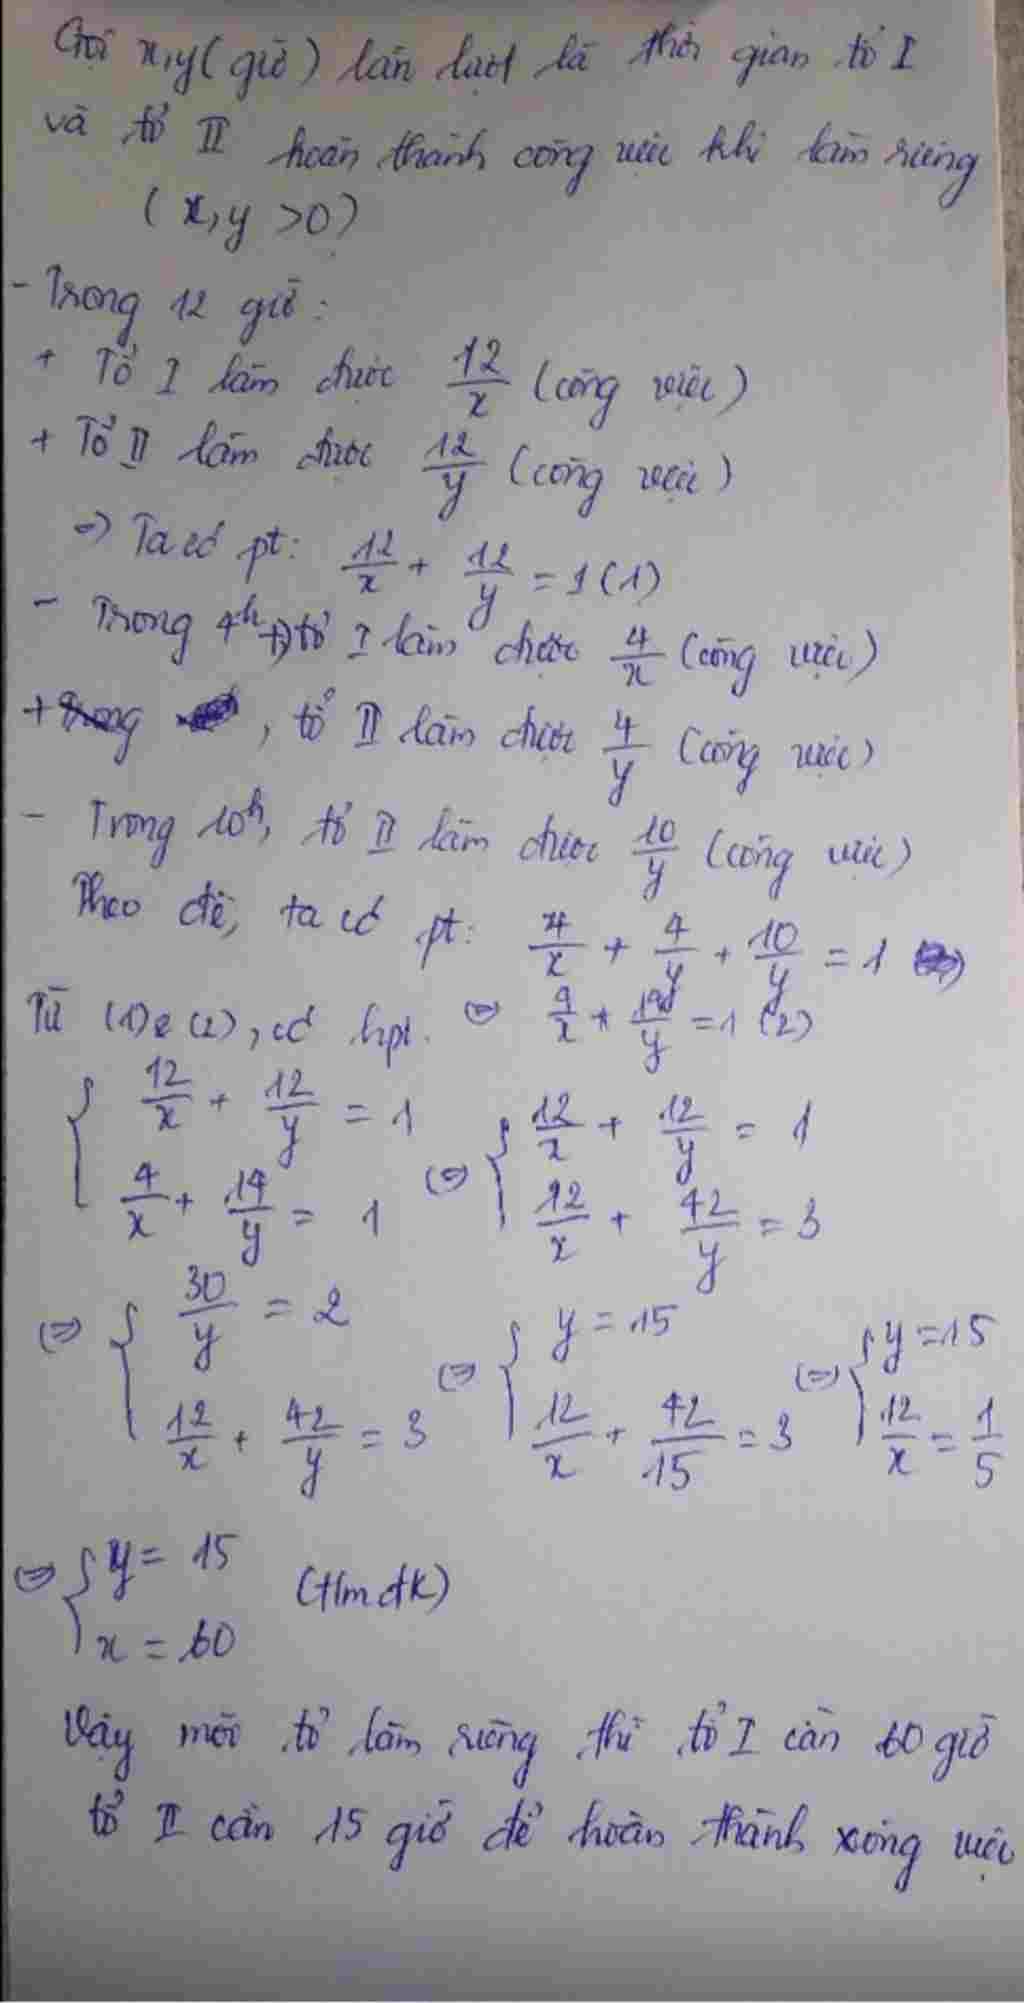 Gọi x,y (giờ) lần lượt là thời gian tổ I
và tổ II hoàn thành công việc khi làm riêng
(x,y >0)
- Trong 12 giờ:
+ Tổ I làm được 12/x (công việc)
+ Tổ II làm được 12/y (công việc)
=> Ta có pt: 12/x + 12/y = 1 (1)
- Trong 4h tổ I làm được 4/x (công việc)
+ Trong , tổ II làm được 4/y (công việc)
- Trong 10h, tổ II làm được 10/y (công việc)
Theo đề, ta có pt: 4/x + 4/y + 10/y = 1
Từ (1) & (2), có hpt. <=> 4/x + 14/y = 1 (2)
{ 12/x + 12/y = 1 ; 4/x + 14/y = 1 <=> { 12/x + 12/y = 1 ; 12/x + 42/y = 3
<=> { 30/y = 2 ; 12/x + 42/y = 3 <=> { y = 15 ; 12/x + 42/15 = 3 <=> { y = 15 ; 12/x = 1/5
<=> { y = 15 ; x = 60 (tm đk)
Vậy mỗi tổ làm riêng thì tổ I cần 60 giờ
tổ II cần 15 giờ để hoàn thành xong việc